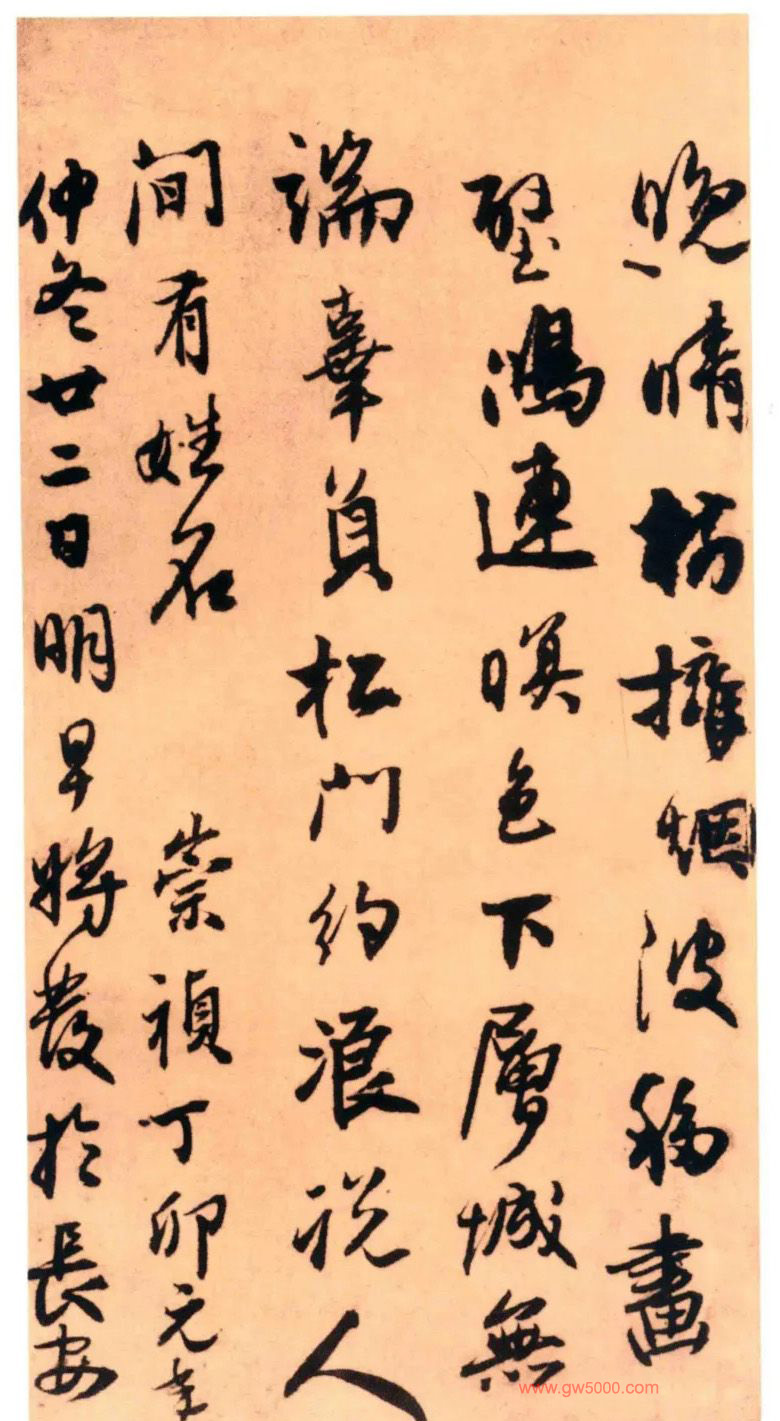 晚晴擁烟波移畫
壁鴻連暝色下層城無
端辜負松門約浪説人
間有姓名 崇禎丁卯元
仲冬廿二日明早將發於長安
www.gw5000.com